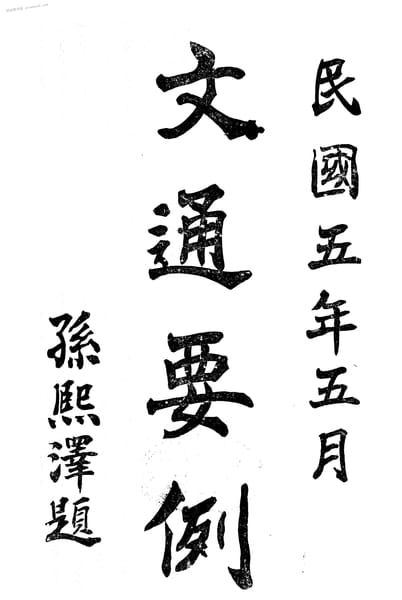 民國五年五月
文通要例
孫熙澤題